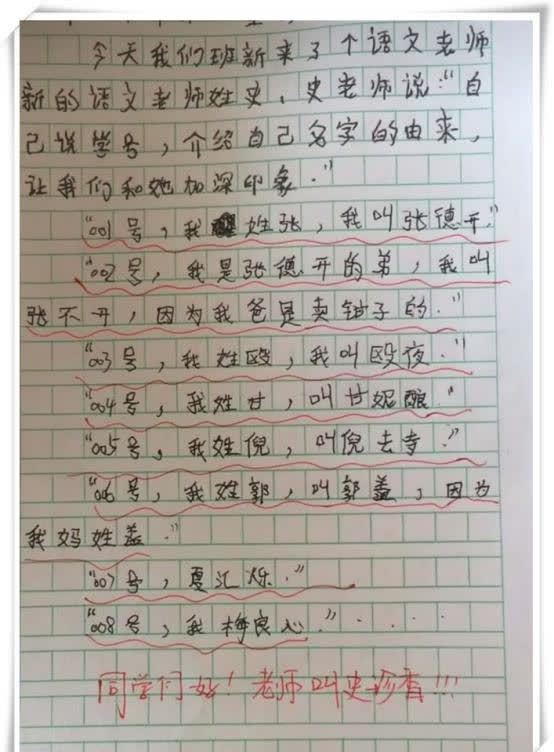 今天我们班新来了个语文老师
新的语文老师姓史,史老师说:“自
己说学号,介绍自己名字的由来,
让我们和她加深印象.”
“001号,我姓张,我叫张德开.”
“002号,我是张德开的弟,我叫
张不开,因为我爸是卖钳子的.”
“003号,我姓殴,我叫殴夜.”
“004号,我姓甘,叫甘妮酿.”
“005号,我姓倪,叫倪去寺.”
“006号,我姓郭,叫郭盖,因为
我妈姓盖.”
“007号,夏汇烁.”
“008号,我梅良心.”....
同学们好!老师叫史诊香!!!